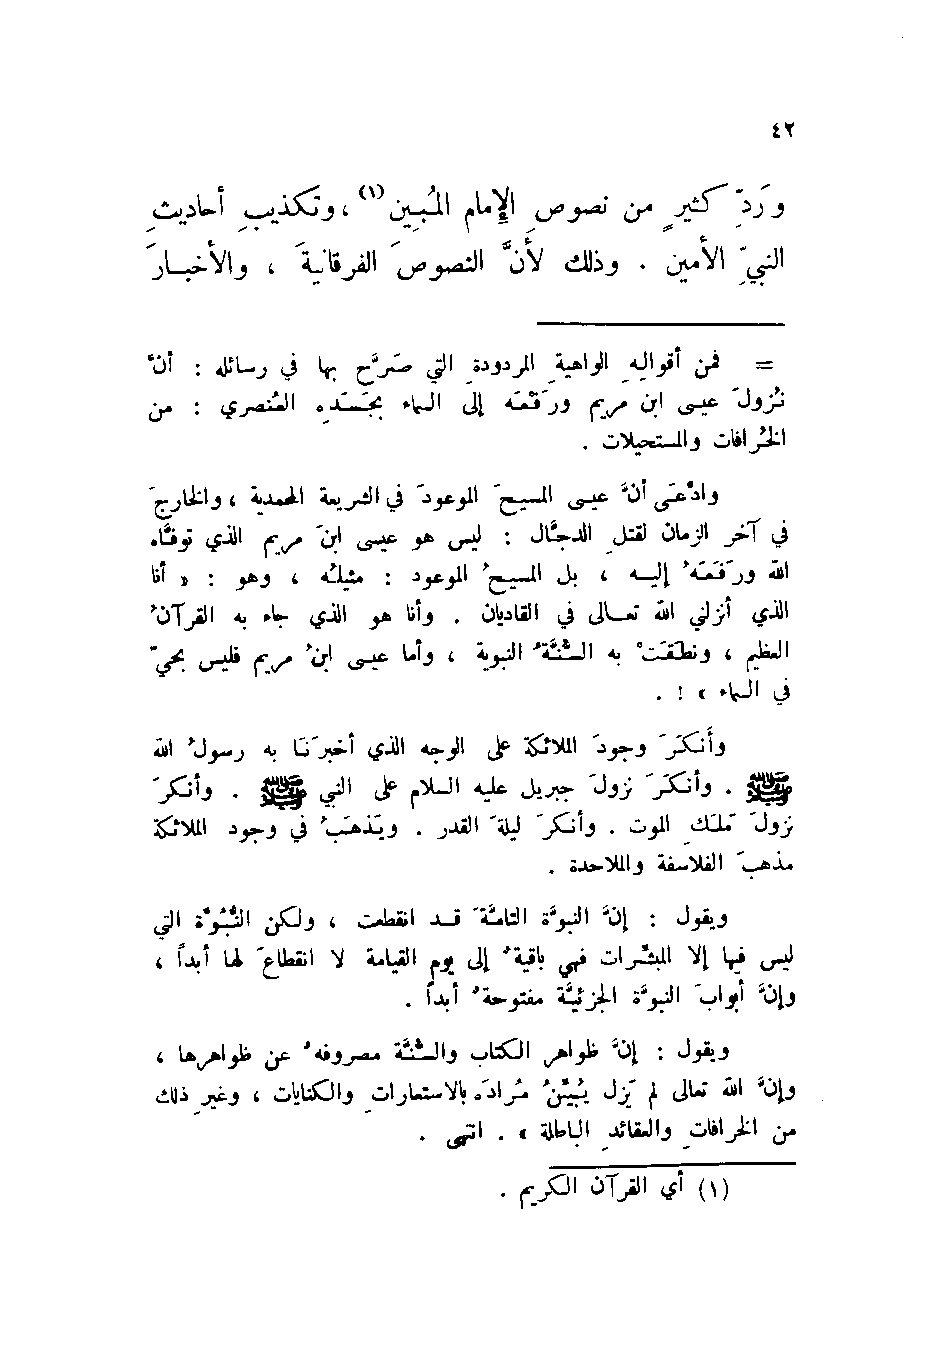 ٤٢
ورَدِّ كثيرٍ من نصوصِ الإمام المُبين(١)، وتكذيبِ أحاديثِ
النبيِّ الأمين . وذلك لأنَّ النصوصَ الفرقانيةَ ، والأخبارَ
= فمن أقوالِه الواهيةِ المردودةِ التي صَرَّح بها في رسائله : أنَّ
نُزولَ عيسى ابن مريم ورَفْعَه إلى السماء بجَسَدِه العُنصري : من
الخُرافات والمستحيلات .
وادَّعَى أنَّ عيسى المسيحَ الموعودَ في الشريعة المحمدية ، والخارجَ
في آخر الزمان لقتلِ الدجَّال : ليس هو عيسى ابنَ مريم الذي توفَّاه
الله ورَفَعَه إليه ، بل المسيحُ الموعود : مثيلُه ، وهو : « أنا
الذي أنزلني الله تعالى في القاديان . وأنا هو الذي جاء به القرآنُ
العظيم ، ونطَقَتْ به السُّنَّةُ النبوية ، وأما عيسى ابنُ مريم فليس بحيّ
في السماء » ! .
وأَنكَرَ وجودَ الملائكة على الوجه الذي أخبرَنَا به رسولُ الله
ﷺ . وأنكَرَ نزولَ جبريل عليه السلام على النبي ﷺ . وأنكرَ
نزولَ مَلَك الموت . وأنكرَ ليلةَ القدر . ويَذهَبُ في وجود الملائكة
مذهبَ الفلاسفة والملاحدة .
ويقول : إنَّ النبوَّة التامَّةَ قد انقطعت ، ولكن النُّبُوَّة التي
ليس فيها إلا المبشِّرات فهي باقيةٌ إلى يوم القيامة لا انقطاعَ لها أبداً ،
وإنَّ أبوابَ النبوَّة الجزئيَّة مفتوحةٌ أبداً .
ويقول : إنَّ ظواهر الكتاب والسُّنَّة مصروفةٌ عن ظواهرها ،
وإنَّ الله تعالى لم يَزل يُبيِّنُ مُرادَه بالاستعاراتِ والكنايات ، وغيرِ ذلك
من الخرافاتِ والعقائدِ الباطلة » . انتهى .
(١) أي القرآن الكريم .